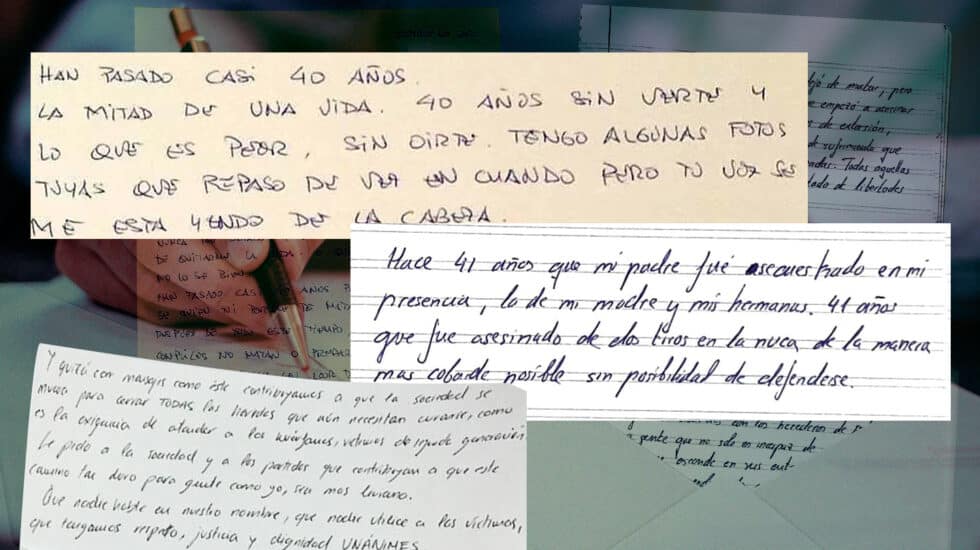 HAN PASADO CASI 40 AÑOS.
LA MITAD DE UNA VIDA. 40 AÑOS SIN VERTE Y
LO QUE ES PEOR, SIN OIRTE. TENGO ALGUNAS FOTOS
TUYAS QUE REPASO DE VEZ EN CUANDO PERO TU VOZ SE
ME ESTA YENDO DE LA CABEZA.
de matar, pero
empezó a asesinar
de extorsión,
sufrimiento que
Todas aquellas
de libertades
Hace 41 años que mi padre fué asecuestrado en mi
presencia, la de mi madre y mis hermanas. 41 años
que fue asesinado de dos tiros en la nuca de la manera
mas cobarde posible sin posibilidad de defenderse.
NUNCA
DE QUITARLE LA VIDA.
NO LO SE BIEN
HAN PASADO CASI
Y quizá con mensajes como éste contribuyamos a que la sociedad se
mueva para cerrar TODAS las heridas que aún necesitan curarse, como
es la exigencia de atender a los huérfanos, víctimas de segunda generación.
Le pido a la sociedad y a los partidos que contribuyan a que este
camino tan duro para gente como yo, sea mas liviano.
Que nadie hable en nuestro nombre, que nadie utilice a las víctimas,
que tengamos respeto, justicia y dignidad UNÁNIMES
con los herederos de
gente que no sólo es incapaz de
esconde en sus